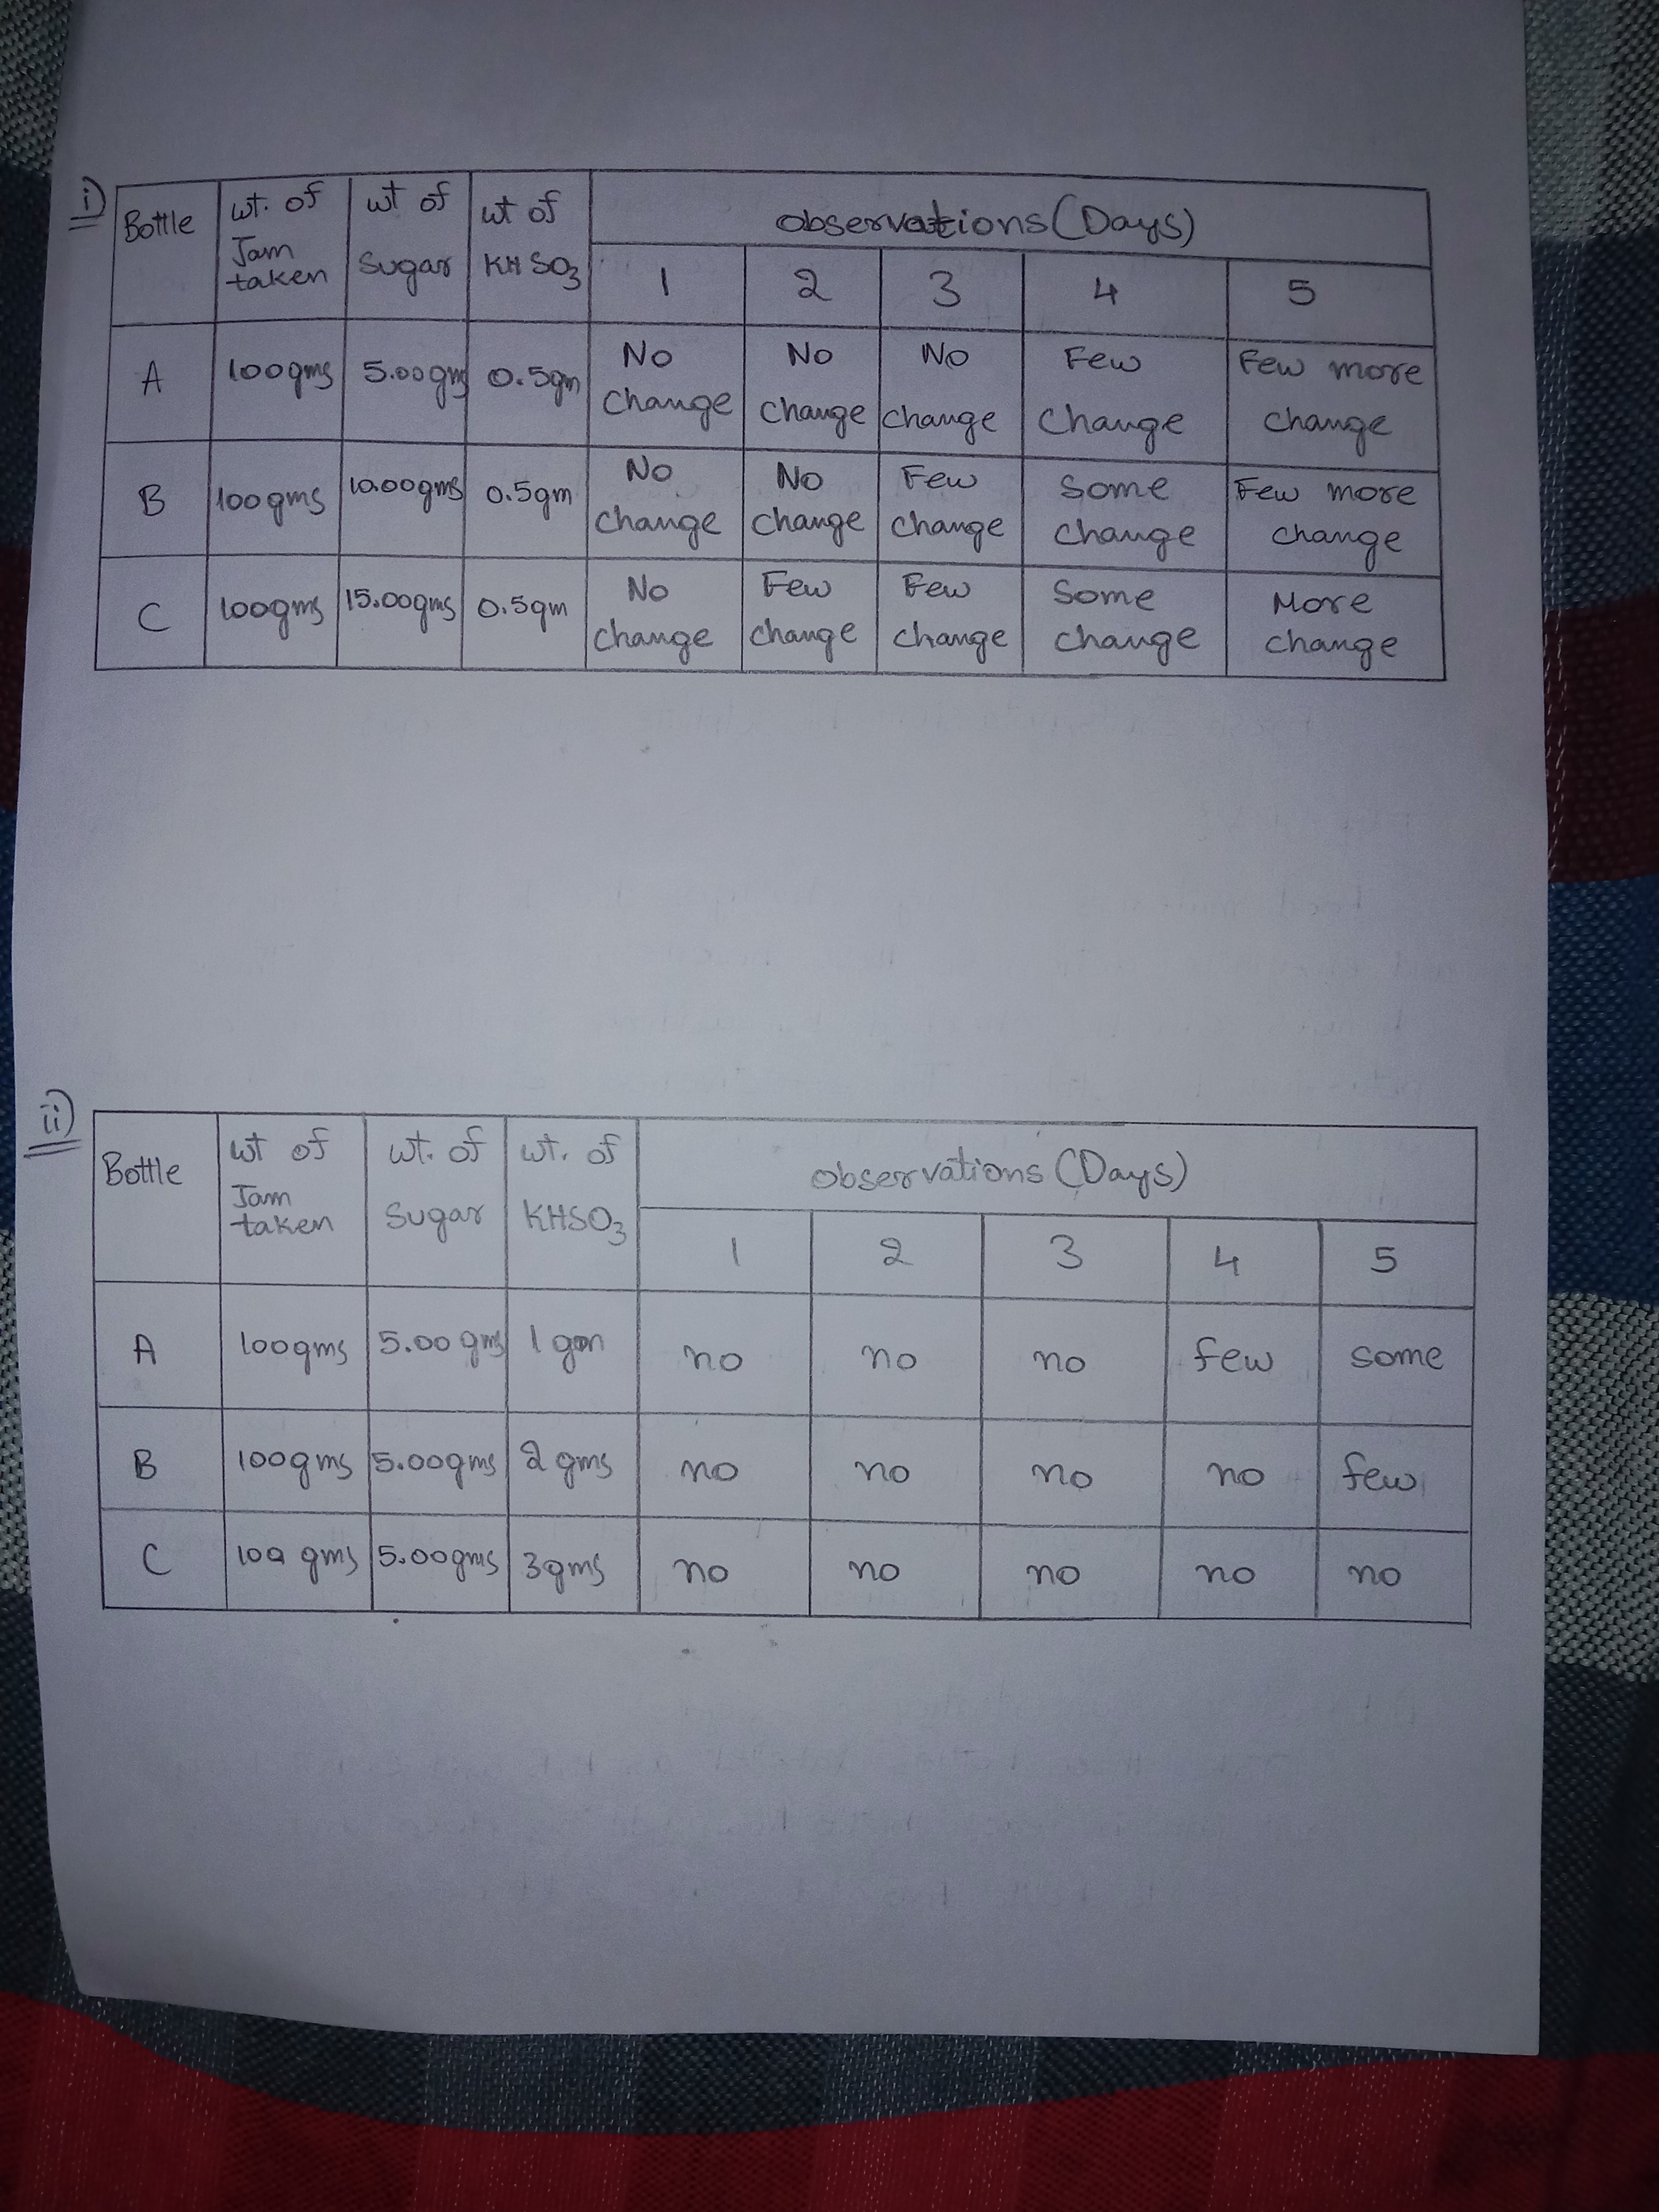 i)
Bottle | wt. of Jam taken | wt of Sugar | wt of KHSO3 | Observations (Days)
1 | 2 | 3 | 4 | 5
A | 100gms | 5.00gms | 0.5gm | No change | No change | No change | Few change | Few more change
B | 100gms | 10.00gms | 0.5gm | No change | No change | Few change | Some change | Few more change
C | 100gms | 15.00gms | 0.5gm | No change | Few change | Few change | Some change | More change
ii)
Bottle | wt of Jam taken | wt. of Sugar | wt. of KHSO3 | Observations (Days)
1 | 2 | 3 | 4 | 5
A | 100gms | 5.00 gms | 1 gm | no | no | no | few | some
B | 100gms | 5.00gms | 2 gms | no | no | no | no | few
C | 100 gms | 5.00gms | 3gms | no | no | no | no | no